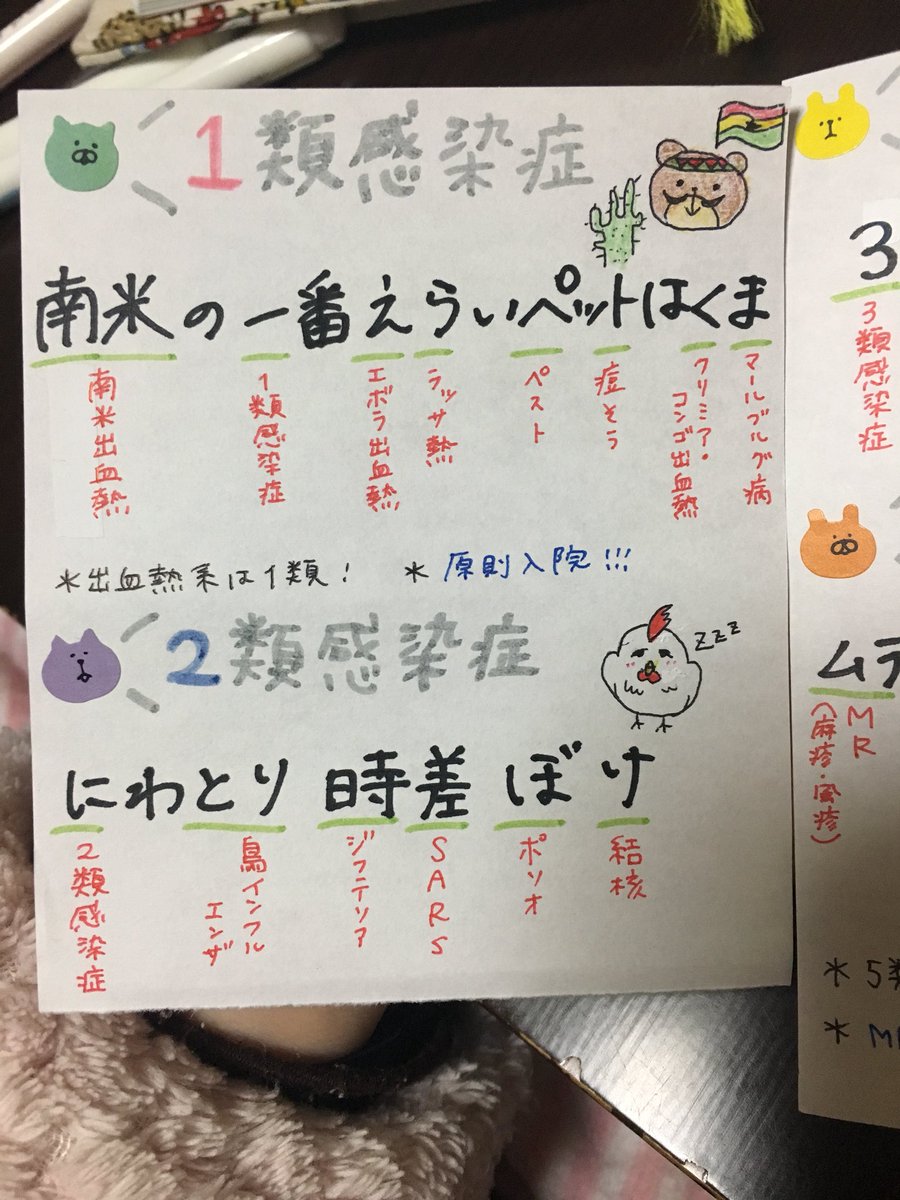 1類感染症
南米の一番えらいペットはくま
南米出血熱
1類感染症
エボラ出血熱
ラッサ熱
ペスト
痘そう
クリミア・コンゴ出血熱
マールブルグ病
＊出血熱系は1類！
＊原則入院!!!
2類感染症
zzz
にわとり 時差 ぼけ
2類感染症
鳥インフルエンザ
ジフテリア
SARS
ポリオ
結核
3
3類感染症
ムデ
MR
(麻疹・風疹)
＊5類
＊M